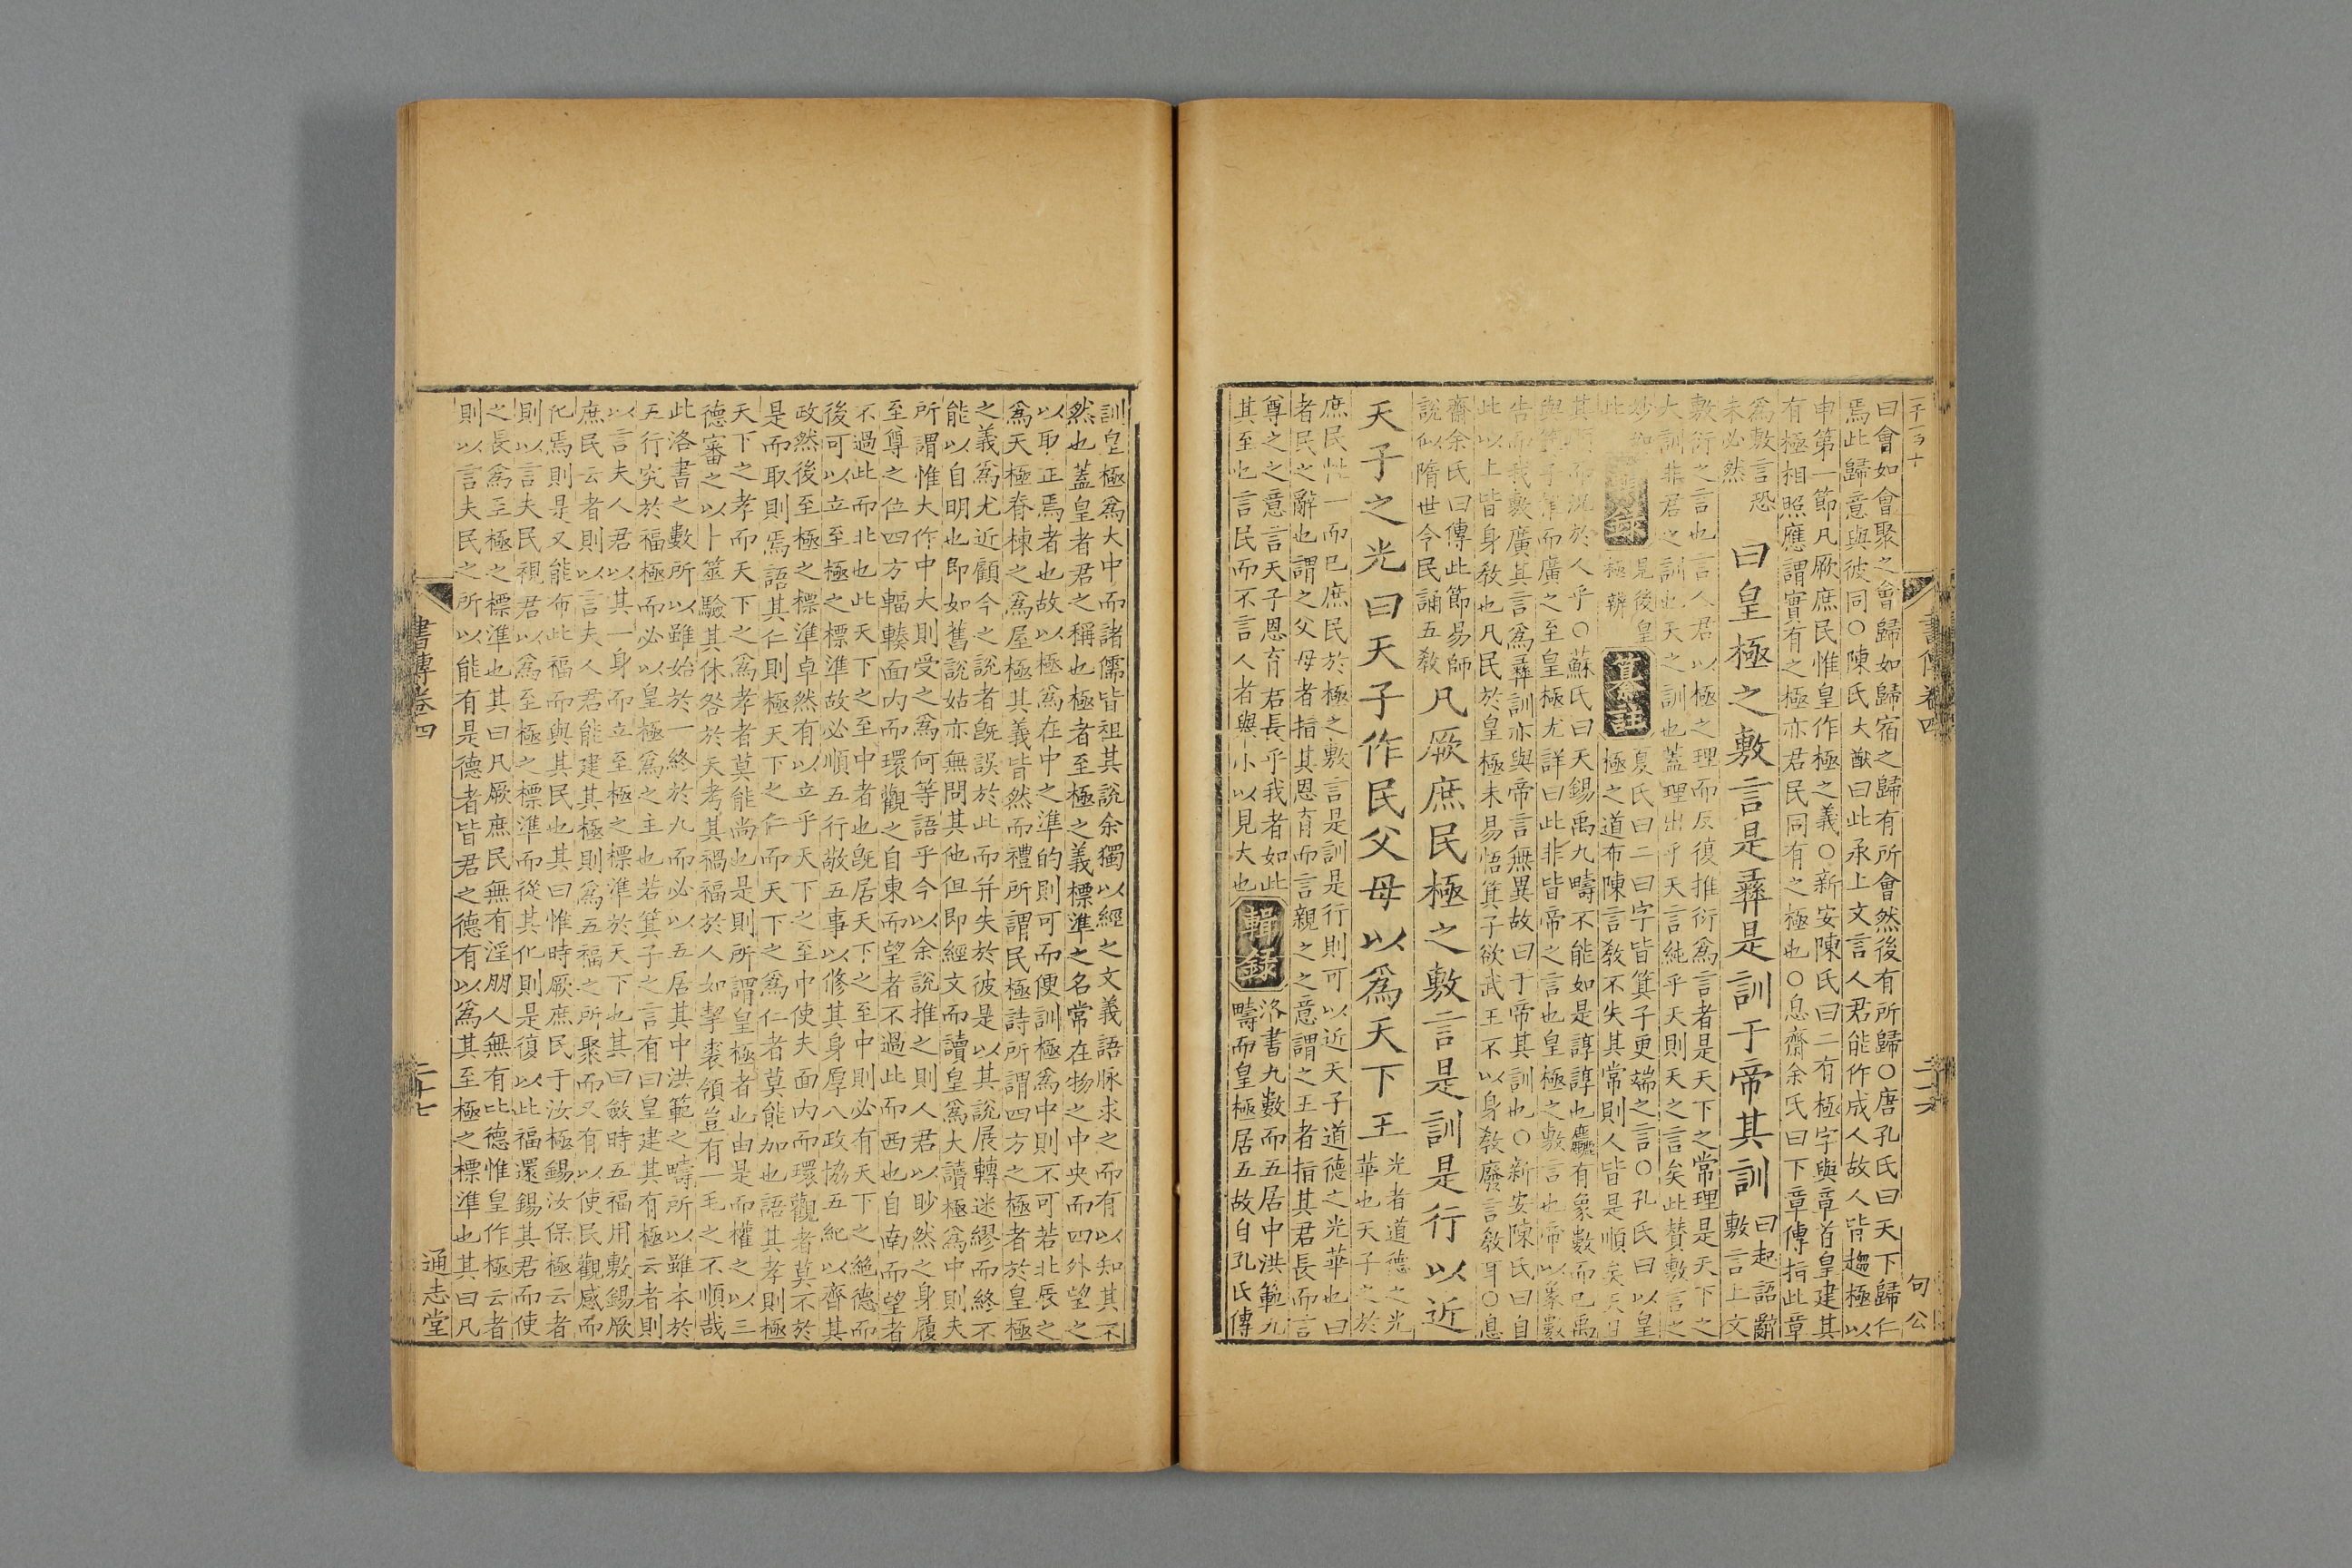 書傳卷四
二十六
句公
曰會如會聚之會歸如歸宿之歸有所會然後有所歸○唐孔氏曰天下歸仁
焉此歸意與彼同○陳氏大猷曰此承上文言人君能作成人故人皆趨極以
申第一節凡厥庶民惟皇作極之義○新安陳氏曰二有極字與章首皇建其
有極相照應謂實有之極亦君民同有之極也○息齋余氏曰下章傳指此章
爲敷言恐
未必然
曰皇極之敷言是彝是訓于帝其訓
曰起語辭
敷言上文
敷衍之言也言人君以極之理而反復推衍爲言者是天下之常理是天下之
大訓非君之訓也天之訓也蓋理出乎天言純乎天則天之言矣此贊敷言之
妙如
此
輯錄
見後皇
極辨
纂註
夏氏曰二曰字皆箕子更端之言○孔氏曰以皇
極之道布陳言教不失其常則人皆是順矣天且
其順而況於人乎○蘇氏曰天錫禹九疇不能如是諄諄也麤有象數而已禹
與箕子推而廣之至皇極尤詳曰此非皆帝之言也皇極之敷言也帝以象數
告而我敷廣其言爲彝訓亦與帝言無異故曰于帝其訓也○新安陳氏曰自
此以上皆身教也凡民於皇極未易悟箕子欲武王不以身教廢言教耳○息
齋余氏曰傳此節易師
說似隋世今民誦五教
凡厥庶民極之敷言是訓是行以近
天子之光曰天子作民父母以爲天下王
光者道德之光
華也天子之於
庶民性一而已庶民於極之敷言是訓是行則可以近天子道德之光華也曰
者民之辭也謂之父母者指其恩育而言親之之意謂之王者指其君長而言
尊之之意言天子恩育君長乎我者如此
其至也言民而不言人者與小以見大也
輯錄
洛書九數而五居中洪範九
疇而皇極居五故自孔氏傳
訓皇極爲大中而諸儒皆祖其說余獨以經之文義語脉求之而有以知其不
然也蓋皇者君之稱也極者至極之義標準之名常在物之中央而四外望之
以取正焉者也故以極爲在中之準的則可而便訓極爲中則不可若北辰之
爲天極脊棟之爲屋極其義皆然而禮所謂民極詩所謂四方之極者於皇極
之義爲尤近顧今之說者旣誤於此而并失於彼是以其說展轉迷繆而終不
能以自明也即如舊說姑亦無問其他但即經文而讀皇爲大讀極爲中則夫
所謂惟大作中大則受之爲何等語乎今以余說推之則人君以眇然之身履
至尊之位四方輻輳面內而環觀之自東而望者不過此而西也自南而望者
不過此而北也此天下之至中也旣居天下之至中則必有天下之絶德而
後可以立至極之標準故必順五行敬五事以修其身厚八政協五紀以齊其
政然後至極之標準卓然有以立乎天下之至中使夫面內而環觀者莫不於
是而取則焉語其仁則極天下之仁而天下之爲仁者莫能加也語其孝則極
天下之孝而天下之爲孝者莫能尚也是則所謂皇極者也由是而權之以三
德審之以卜筮驗其休咎於天考其禍福於人如挈裘領豈有一毛之不順哉
此洛書之數所以雖始於一終於九而必以五居其中洪範之疇所以雖本於
五行究於福極而必以皇極爲之主也若箕子之言有曰皇建其有極云者則
以言夫人君以其一身而立至極之標準於天下也其曰斂時五福用敷錫厥
庶民云者則以言夫人君能建其極則爲五福之所聚而又有以使民觀感而
化焉則是又能布此福而與其民也其曰惟時厥庶民于汝極錫汝保極云者
則以言夫民視君以爲至極之標準而從其化則是復以此福還錫其君而使
之長爲至極之標準也其曰凡厥庶民無有淫朋人無有比德惟皇作極云者
則以言夫民之所以能有是德者皆君之德有以爲其至極之標準也其曰凡
書傳卷四
二十七
通志堂